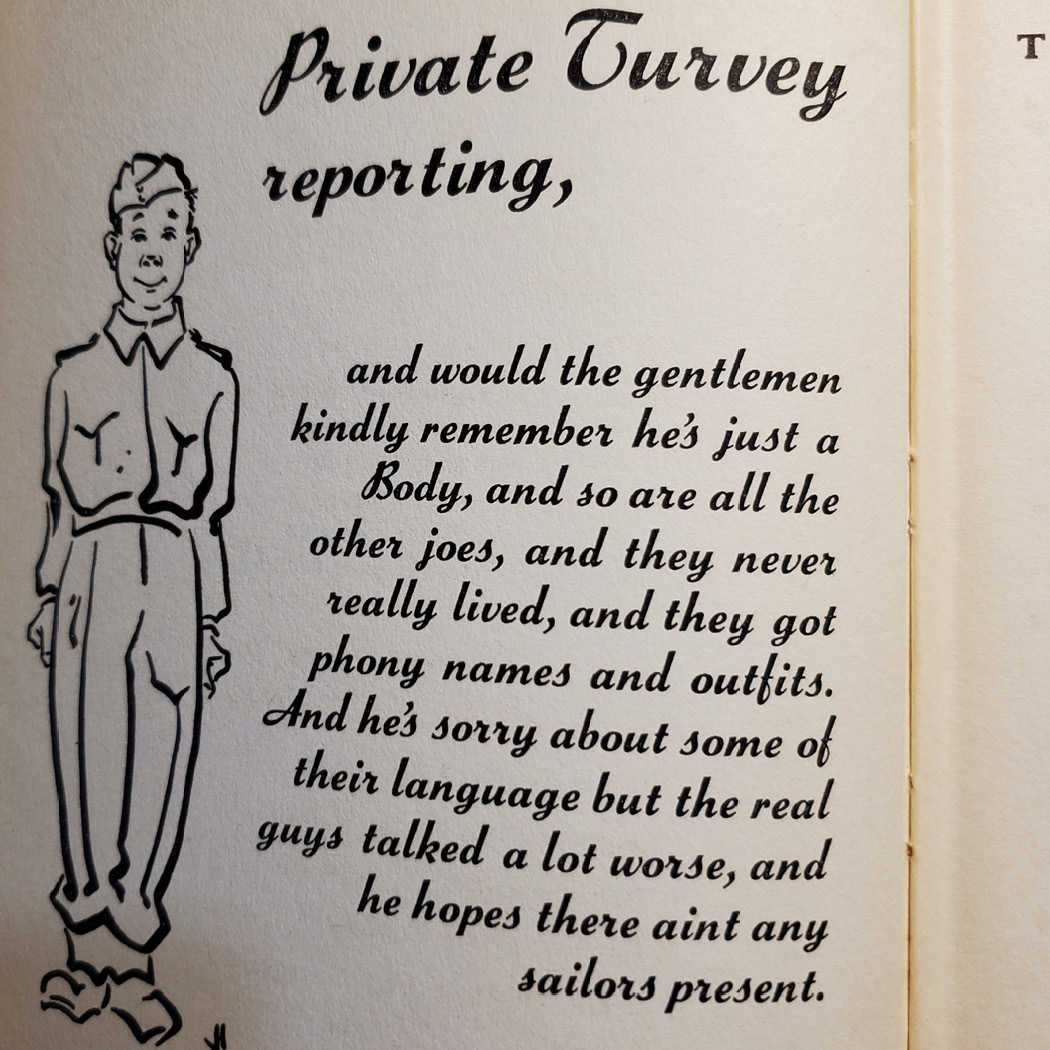 Private Turvey
reporting,
and would the gentlemen
kindly remember he's just a
Body, and so are all the
other joes, and they never
really lived, and they got
phony names and outfits.
And he's sorry about some of
their language but the real
guys talked a lot worse, and
he hopes there aint any
sailors present.
T